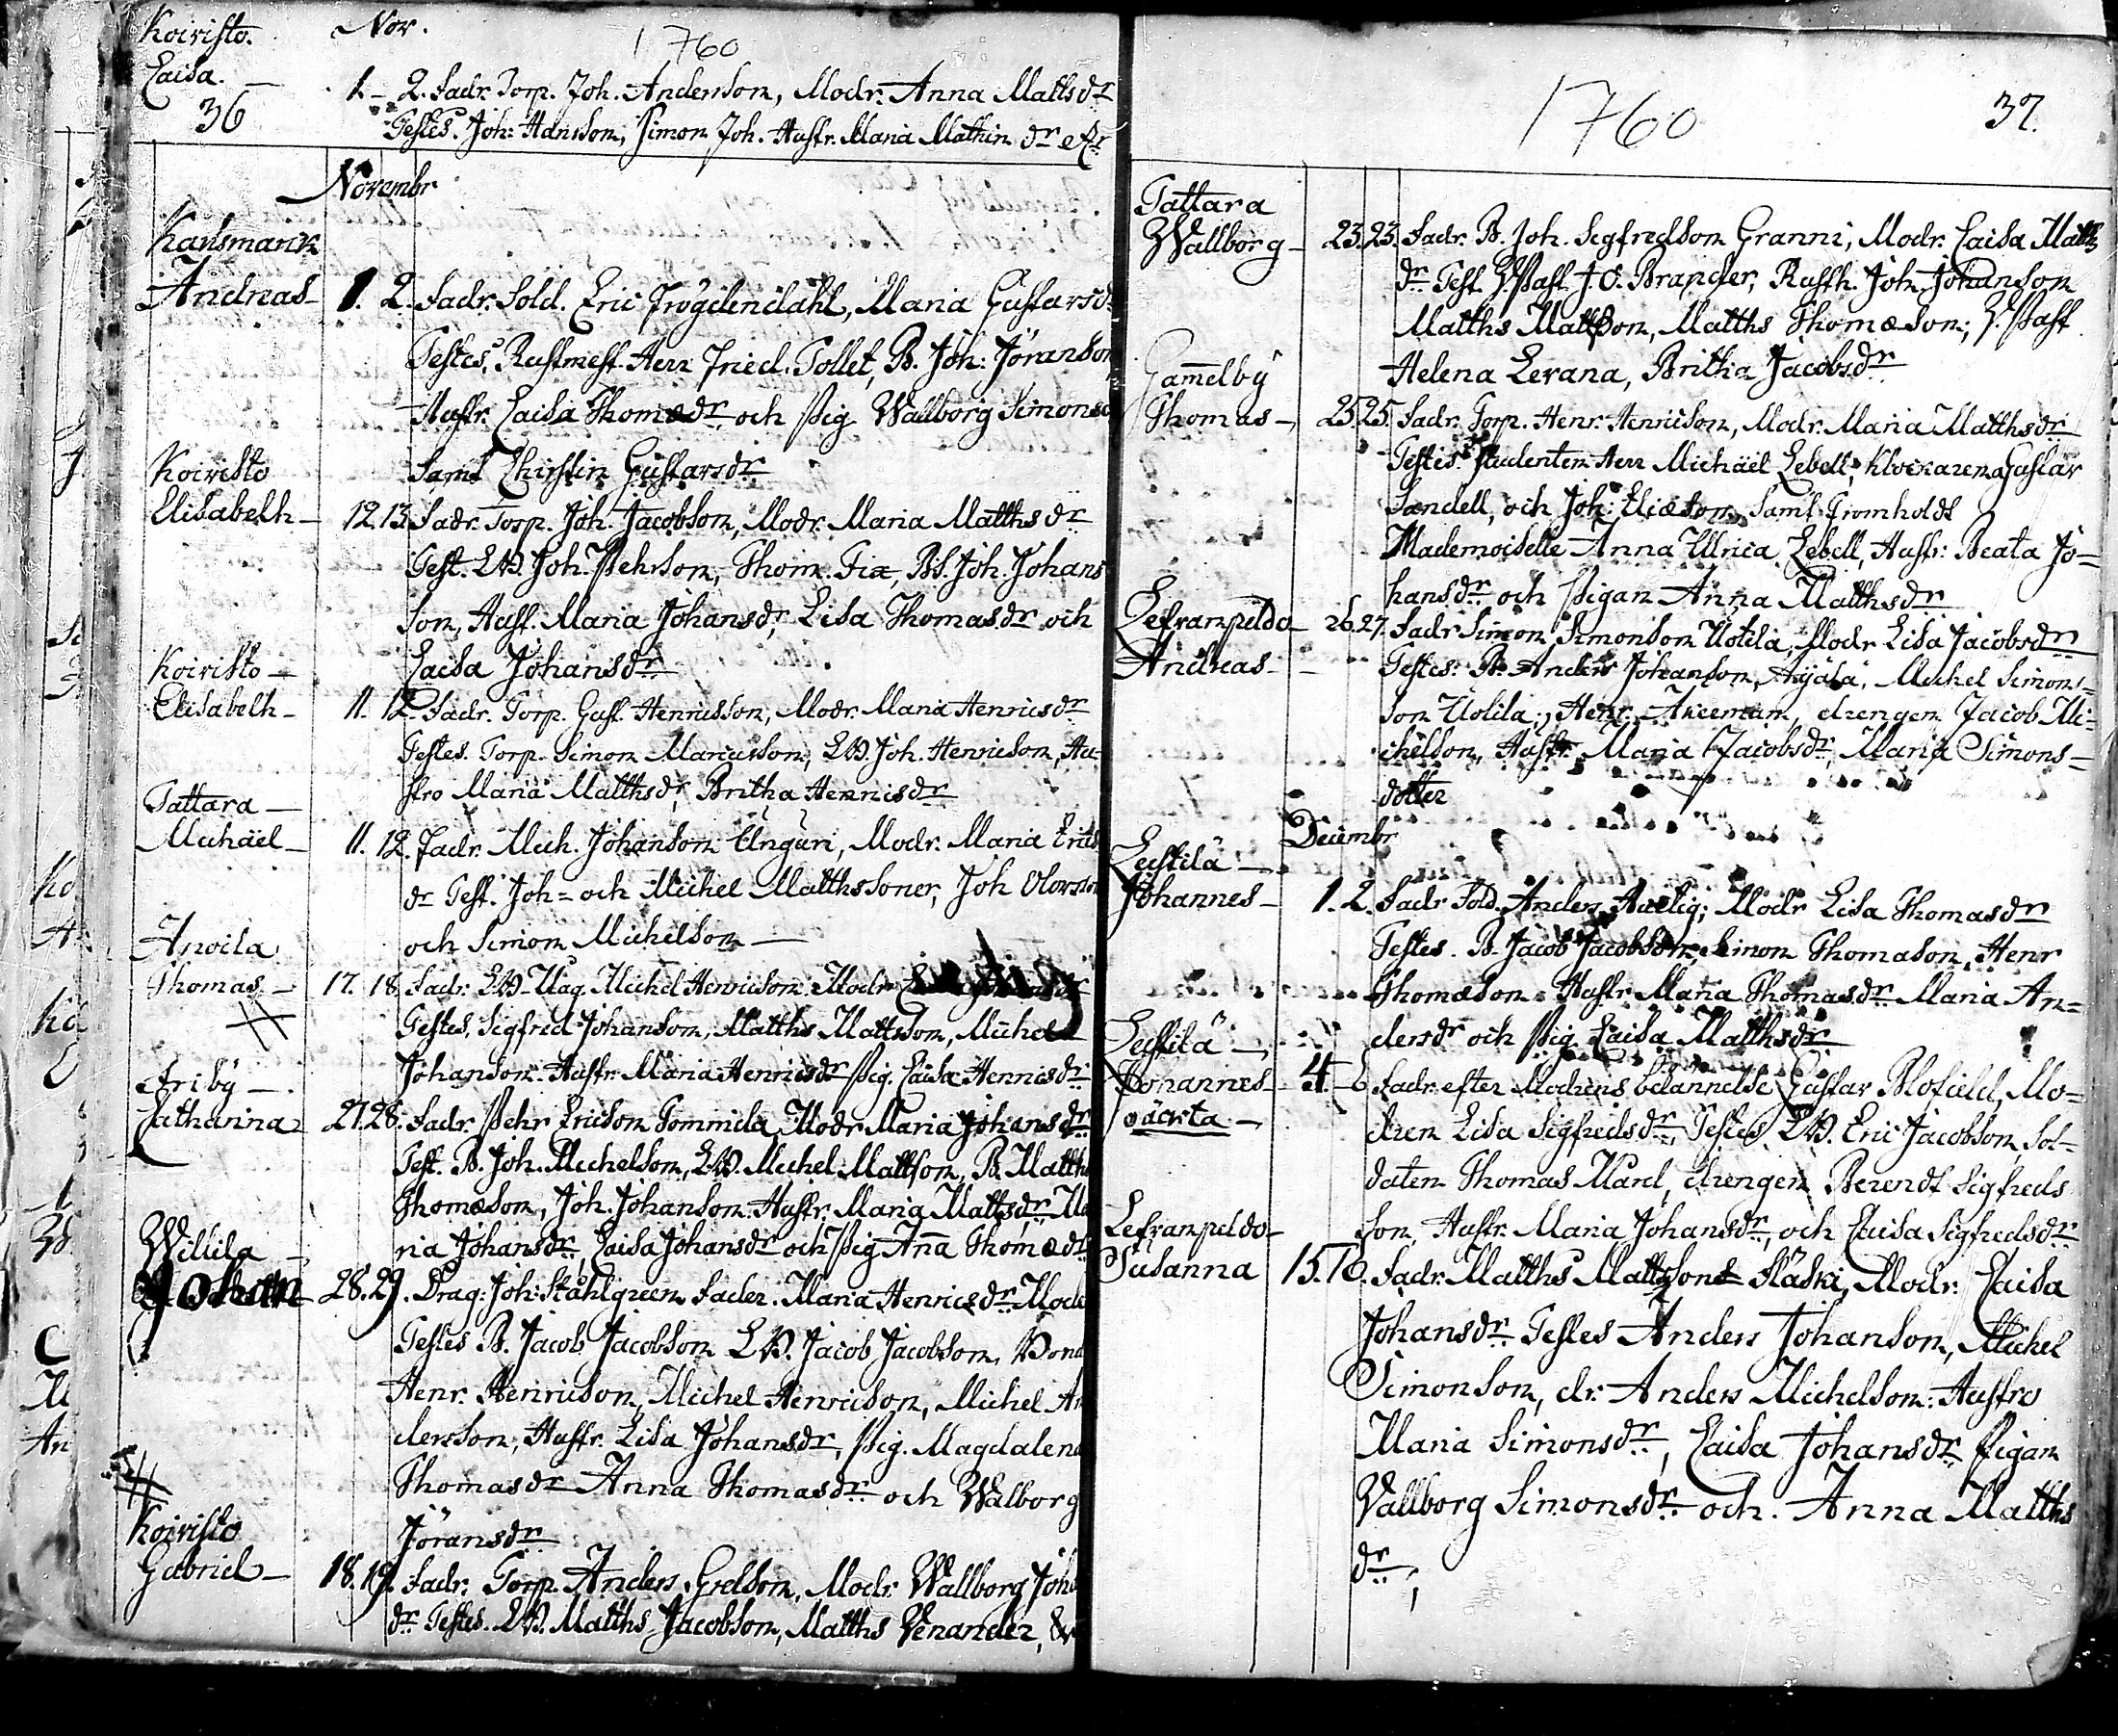 Koivisto. Nov. 1760
Caisa. — 1. 2. Fadr. Torp. Joh. Anderson, Modr. Anna Matts dr
36 Testes. Joh: Hansson, Simon Joh. Hustr. Maria Mathiæ dr etc
Novembr
Karlsmark
Andreas 1. 2. Fadr. Sold. Eric Frögdendahl, Maria Gustafsdr
Testes, Rustmest. Herr Fried. Tollet, B. Joh: Jöranson
Hustr. Caisa Thomædr och Pig Wallborg Simonsd
Koivisto Samt Chirstin Gustafsdr
Elisabeth — 12. 13. Fadr. Torp. Joh. Jacobson, Modr. Maria Matthsdr
Test. Joh. Pehrson, Thom. Joh. Johans
son, Hust. Maria Johansdr, Lisa Thomasdr och
Koivisto — Caisa Johansdr
Elisabeth — 11. 12. Fadr. Torp. Gust. Henricsson, Modr. Maria Henricsdr
Testes. Torp. Simon Marcusson, Joh. Henricson, Hu-
Tattara — stro Maria Matthsdr, Britha Henricsdr
Michäel — 11. 12. Fadr. Mich. Johanson Unguri, Modr. Maria Erics
dr Test. Joh = och Michel Matthssoner, Joh
Anoila och Simon Michelson —
Thomas — 17. 18. Fadr. Michel Henricson Modr
Testes, Sigfred Johanson, Matths Mattsson, Michel
Friby — Johanson. Hustr. Maria Henricsdr Pig. Caisa Henricsdr
Catharina 27. 28. Fadr. Pehr Ericson Tommila Modr Maria Johansdr
Test. B. Joh. Michelson, Michel Mattson, B. Matths
Thomæson, Joh. Johanson Hustr. Maria Mattsdr Ma
Willila — ria Johansdr, Caisa Johansdr och Pig Anna Thomædr
Johan 28. 29. Drag: Joh: Stählgreen Fader. Maria Henricsdr Mode
Testes B. Jacob Jacobson Jacob Jacobson, Bond
Henr. Henricson, Michel Henricson, Michel An
dersson, Hustr. Lisa Johansdr, Pig. Magdalena
Thomasdr Anna Thomasdr och Walborg
Koivisto Jöransdr
Gabriel — 18. 19. Fadr. Torp. Anders Modr Wallborg Joha
dr Testes. Matths Jacobson, Matths Venander,
1760 37.
Tattara
Wallborg — 23. 23. Fadr. B. Joh. Segfredson Granni, Modr. Caisa Matths
dr Test. J. O. Brander, Rusth. Joh Johanson
Matths Mattson, Matths Thomæson;
Gammelby Helena Levana, Britha Jacobsdr
Thomas — 25. 25. Fadr. Torp. Henr. Henricson, Modr. Maria Matthsdr
Testes. Studenten Herr Michäel Lebell, Klockaren Gustav
Sandell, och Joh: samt
Mademoiselle Anna Ulrica Lebell, Hustr: Beata Jo=
hansdr och Pigan Anna Matthsdr
Lefranpeldo — 26. 27. Fadr Simon Simonson Uotila, Modr Lisa Jacobsdr
Andreas — Testes. B. Anders Johanson Äyälä, Michel Simons=
son Uotila, Henr. Akeeman, drengen Jacob Mi=
chelson, Hustr. Maria Jacobsdr, Maria Simons=
dotter
Decembr
Leistilä —
Johannes — 1. 2. Fadr Sold. Anders Modr Lisa Thomasdr
Testes. B. Jacob Jacobson, Simon Thomason, Henr
Thomæson Hustr Maria Thomasdr Maria An=
Leistilä — dersdr och Pig. Caisa Matthsdr
Johannes — 4. 6 Fadr efter Modrens bekännelse Gustav Blofield, Mo=
oäckta — dren Lisa Sigfredsdr, Testes Eric Jacobson, Sol=
daten Thomas Mard, drengen Berendt Sigfreds
Lefranpeldo — son, Hustr. Maria Johansdr, och Caisa Sigfredsdr
Susanna 15. 16. Fadr. Matths Mattsson Fläski, Modr. Caisa
Johansdr Testes Anders Johanson, Michel
Simonson, dr. Anders Michelson: Hustro
Maria Simonsdr, Caisa Johansdr Pigan
Vallborg Simonsdr och. Anna Matths
dr;